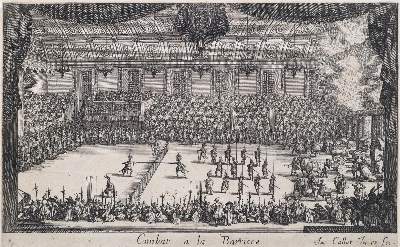 Combat a la Barriere Iac. Callot In. et fec.